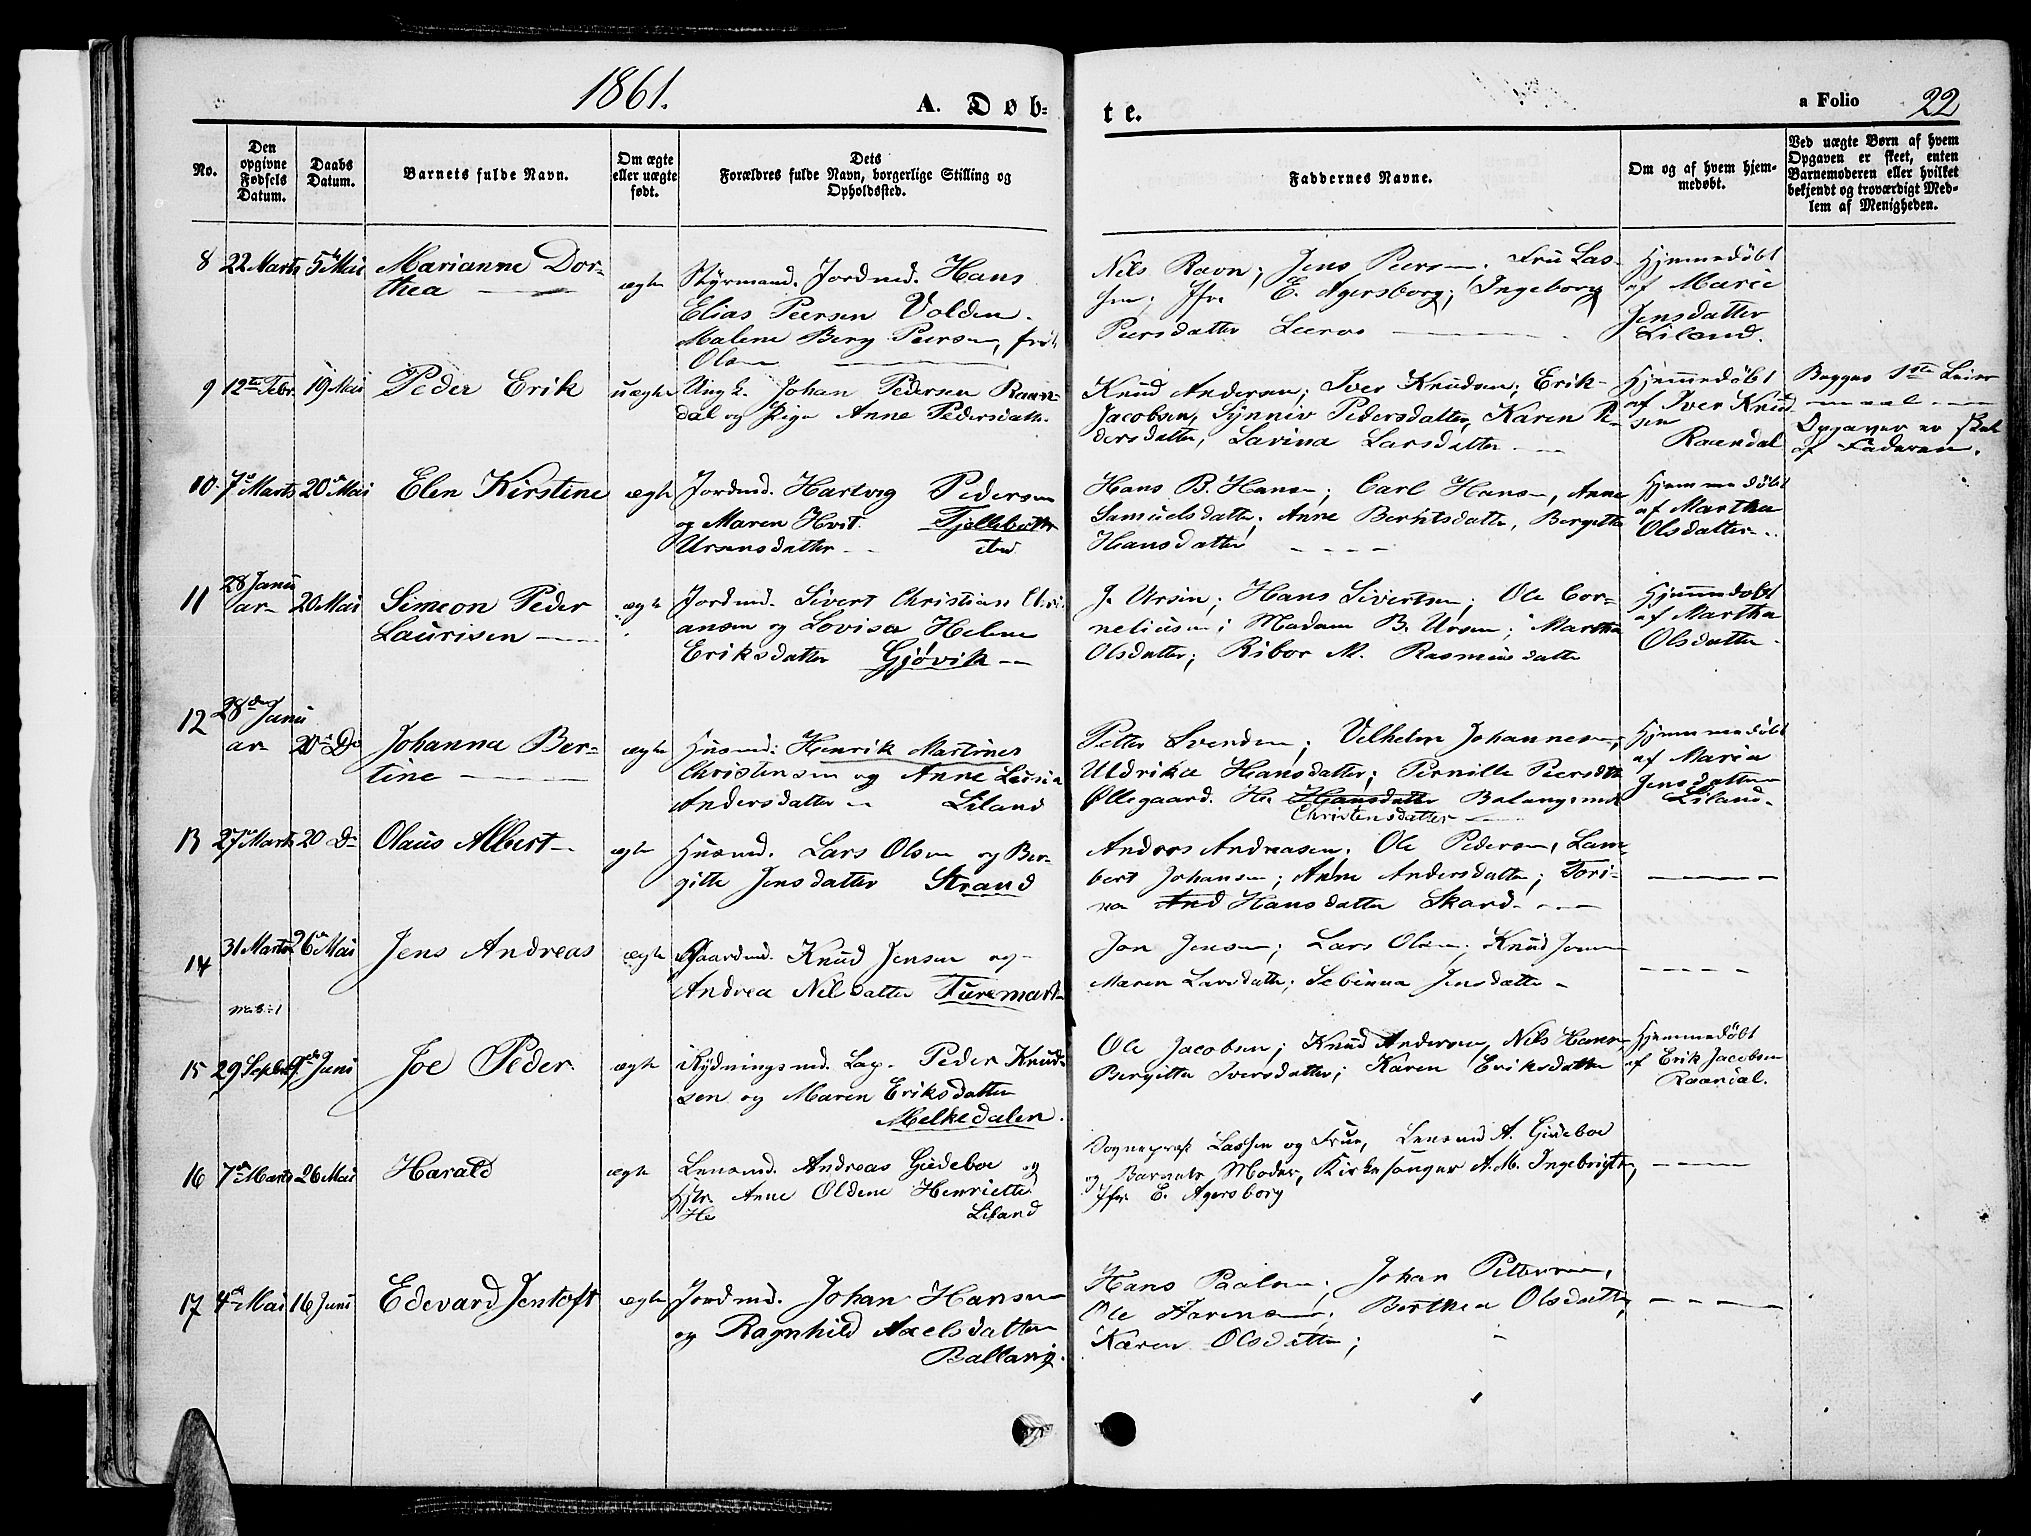 1861.
A. Døb-
te.
a Folio 22
No.
Den
opgivne
Fødsels
Datum.
Daabs
Datum.
Barnets fulde Navn.
Om ægte
eller uægte
født.
Dets
Forældres fulde Navn, borgerlige Stilling og
Opholdssted.
Faddernes Navne.
Om og af hvem hjem-
medøbt.
Ved uægte Børn af hvem
Opgaven er skeet, enten
Barnemoderen eller hvilket
bekjendt og troværdigt Med-
lem af Menigheden.
8 22 Marts 5te Mai Marianne Dor-
thea
ægte
Styrmand. Jordmd. Hans
Elias Peersen Volden.
Malene Berg Peersen, født
Olsen
Nils Ravn; Jens Peersen; Fru Las-
sen; Jfr E. Agersborg; Ingeborg
Peersdatter Leeros
Hjemmedøbt
af Marie
Jensdatter
Liland.
9 12te Febr. 19 Mai Peder Erik
uægte
Ungk. Johan Pedersen Raan-
dal og Pige Anne Pedersdatt.
Knud Andersen; Iver Knudsen; Erik
Jacobsen, Synniv Pedersdatter, Karen Pe-
dersdatter, Lavina Larsdatter
Hjemmedøbt
af Iver Knud-
sen
Raandal
Begges 1ste Leier-
maal
Opgaven er skeet
af Faderen.
10. 7de Marts 20de Mai Elen Kirstine
ægte
Jordmd. Hartvig Pedersen
og Maren Hvit Fjellebotten
Ursensdatter
Hans B. Hansen; Carl Hansen, Anne
Samuelsdatter; Anne Berntsdatter, Bergitte
Hansdatter
Hjemmedøbt
af Martha
Olsdatter
11 28 Janu
ar 20 Mai Simeon Peder
Laurisen
ægte
Jordmd. Sivert Christian Chri-
ansen og Lovisa Helene
Eriksdatter Gjøvik
J. Ursin; Hans Sivertsen; Ole Cor-
neliusen; Madam B. Ursen; Martha
Olsdatter; Ribor M. Rasmusdatter
Hjemmedøbt
af Martha
Olsdatter
12 28de Janu
ar 20 Do Johanna Ber-
tine
ægte
Husmd. Henrik Martines
Christensen og Anne Lusia
Andersdatter Liland
Petter Svendsen; Vilhelm Johannesen;
Uldrika Hansdatter; Pernille Peersdtr
Øllegaard. He Hansdatter Balangsmd
Christensdatter
Hjemmedøbt
af Maria
Jensdatter
Liland.
13 27 Marts 20 Do Olaus Albert
ægte
Husmd. Lars Olsen og Ber-
gitte Jensdatter Strand
Andreas Andreasen; Ole Pedersen, Lam-
bert Johansen; Anne Andersdatter; Tori-
na And Hansdatter Skard
14 31 Marts 26de Mai Jens Andreas
ægte
Gaardmd. Knud Jensen og
Andrea Nilsdatter Furemark
Jon Jensen; Lars Olsen; Knud Jensen
Maren Larsdatter; Sebinna Jensdatter
15 29 Septbr 9de Juni Joe Peder
ægte
Rydningsmd. Lap. Peder Knud-
sen og Maren Eriksdatter
Melkedalen.
Ole Jacobsen; Knud Andersen, Nils Hansen,
Bergitte Iversdatter; Karen Eriksdatter
Hjemmedøbt
af Erik Jacobsen
Raandal.
16 7de Marts 26 Mai Harald
ægte
Lensmd. Andreas Giæboe og
Hstr. Anne Oldene Henriette
He Liland
Sognepræst Lassen og Frue, Lensmd A. Giæboe
og Barnets Moder, Kirkesanger A. M. Ingebrigtsen,
Jfr. E. Agersborg
17 4de Mai 16 Juni Edevard Jentoft
ægte
Jordmd. Johan Hansen
og Ragnhild Axelsdatter
Ballang.
Hans Paalsen; Johan Pettersen,
Ole Hansen; Berthea Olsdatter,
Karen Olsdatter;